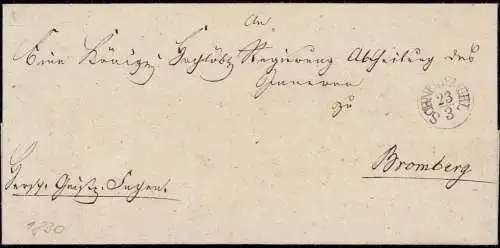 An
Eine Königl. Hochlöbl. Regierung Abtheilung des
Innern
zu
SCHNEIDEMÜHL
23
3
Bromberg
1830